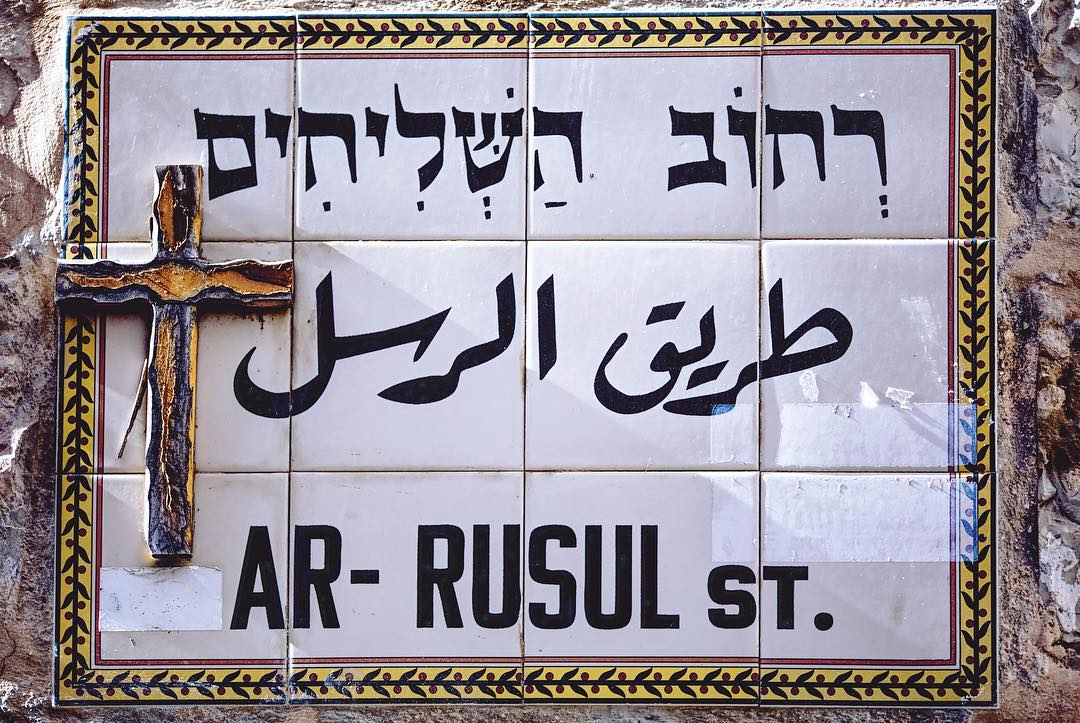 רְחוֹב הַשְּׁלִיחִים
طريق الرسل
AR- RUSUL ST.